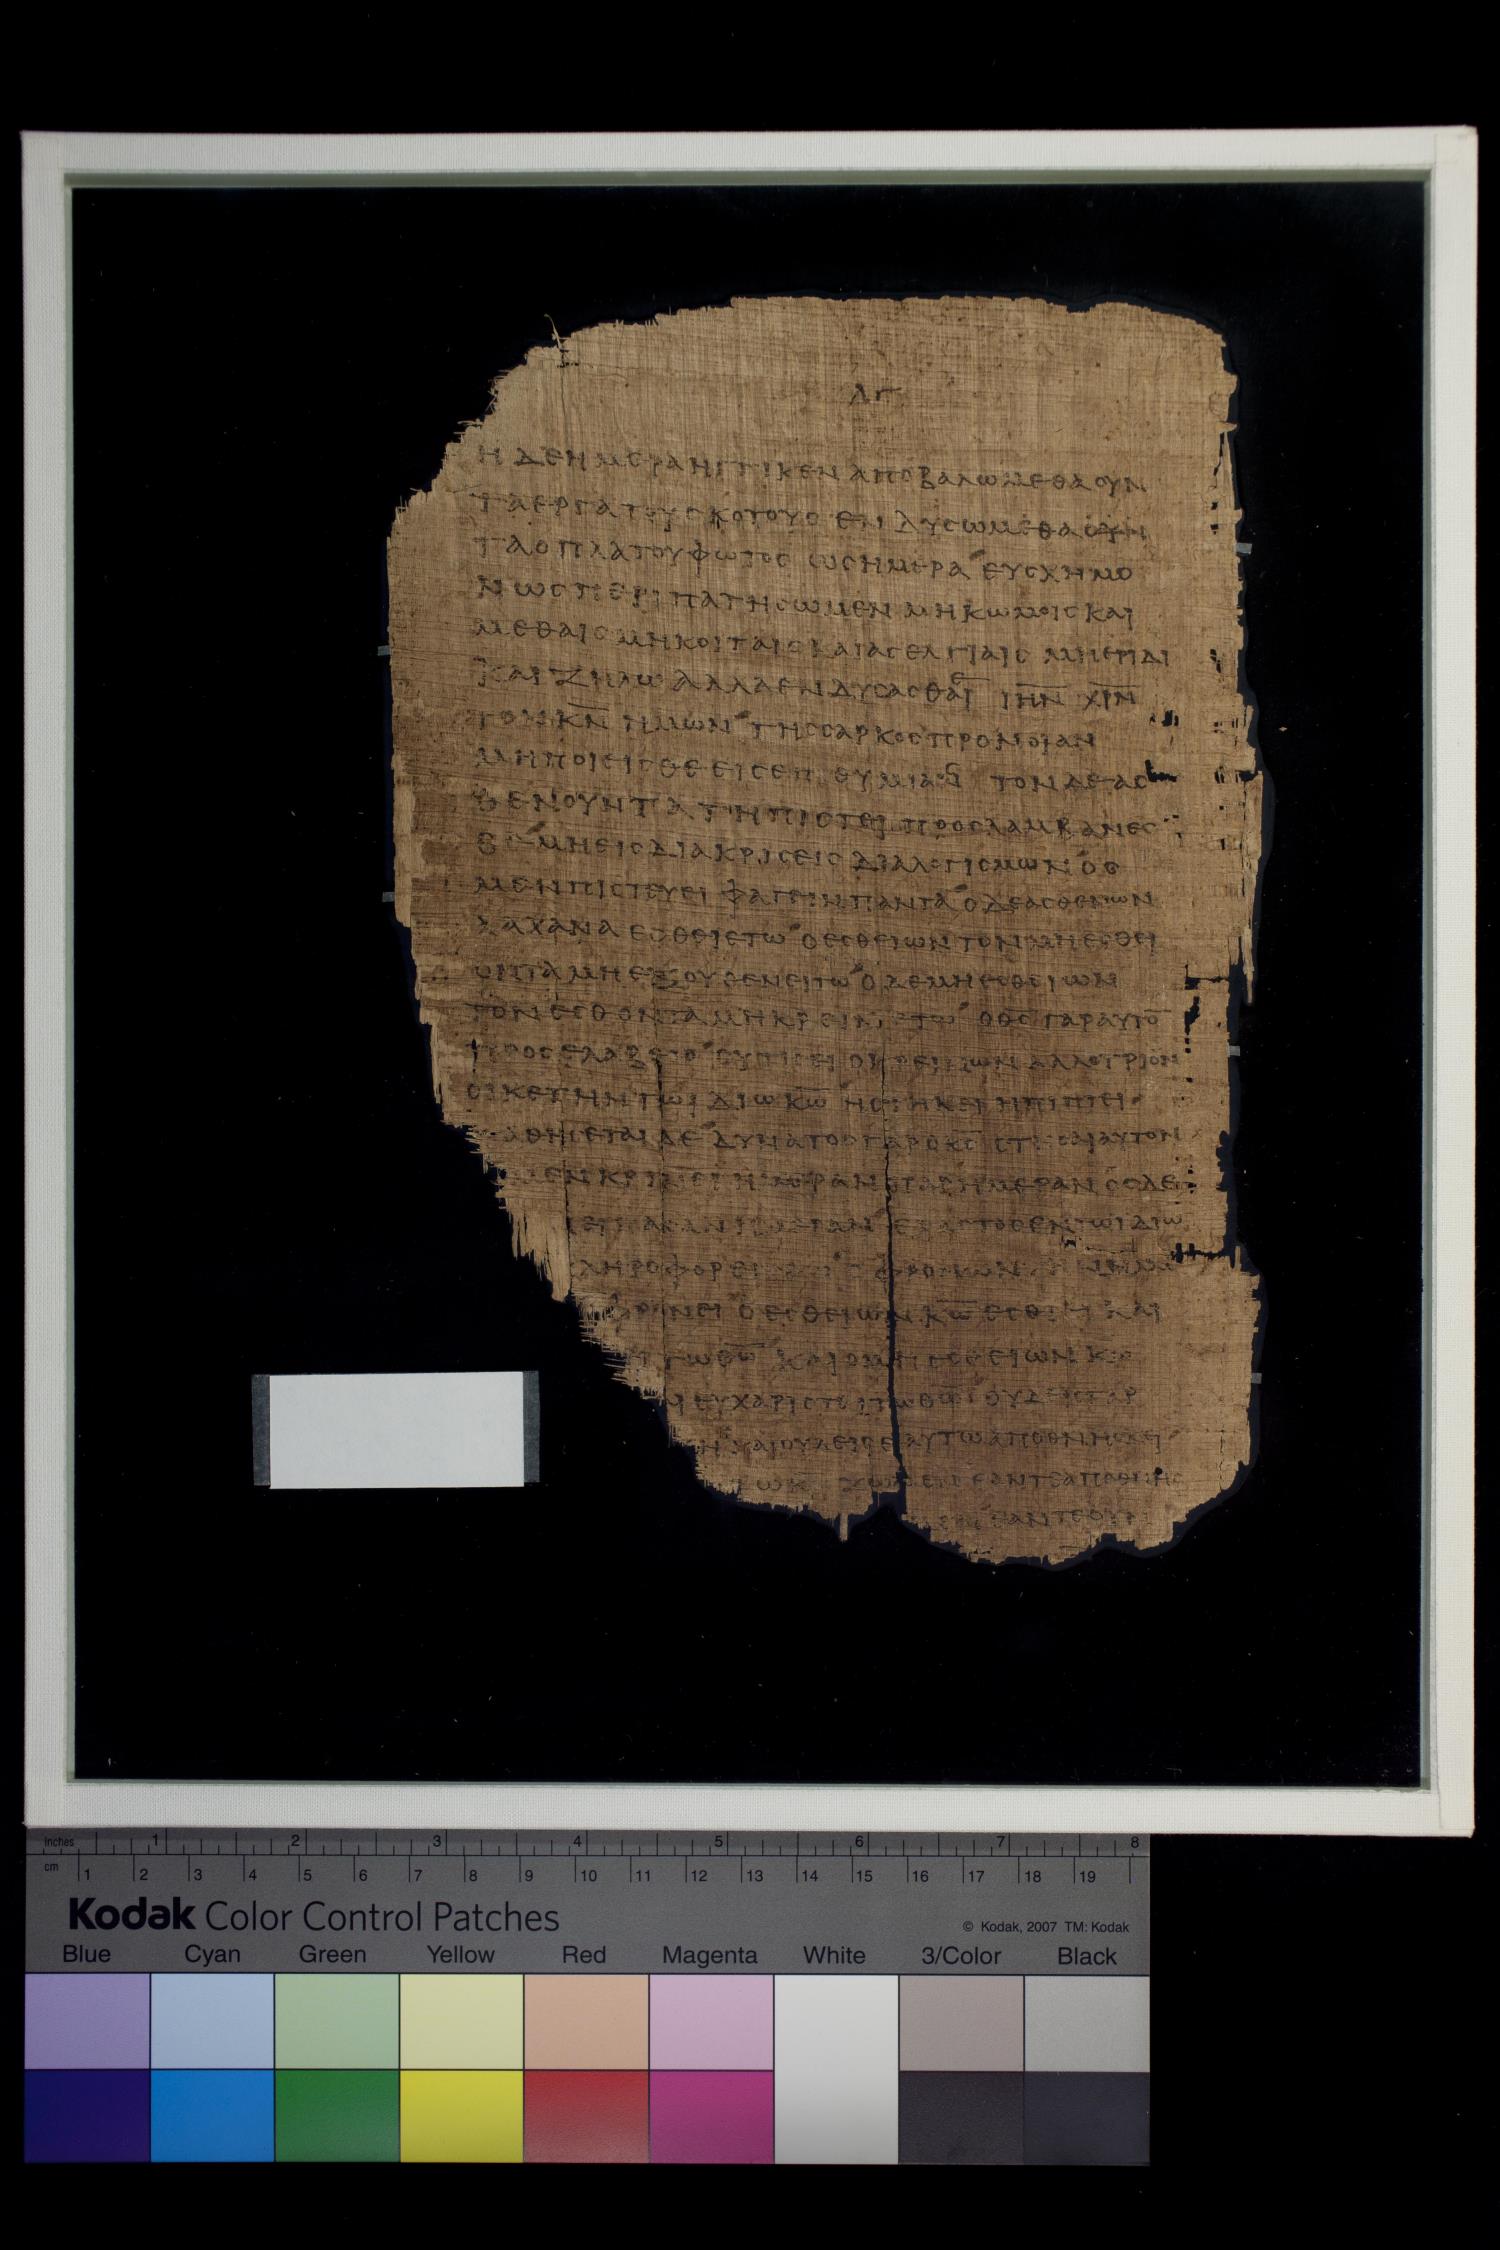 λγ
η δε ημερα ηγγικεν αποβαλωμεθα ουν
τα εργα του σκοτους ενδυσωμεθα ουν
τα οπλα του φωτος ως ημερα ευσχημο
νως περιπατησωμεν μη κωμοις και
μεθαις μη κοιταις και ασελγιαις μη εριδι
και ζηλω αλλα ενδυσασθαι ιην χρν
τον κν ημων της σαρκος προνοιαν
μη ποιεισθε εις επιθυμιας τον δε ασ
θενουντα τη πιστει προσλαμβανεσ
θε μη εις διακρισεις διαλογισμων ος
μεν πιστευει φαγειν παντα ο δε ασθενων
λαχανα εσθειετω ο εσθειων τον μη εσθει
οντα μη εξουθενειτω ο δε μη εσθειων
τον εσθοντα μη κρεινετω ο θς γαρ αυτο
προσελαβετο συ τις ει ο κρεινων αλλοτριον
οικετην τωι διω κω η στηκει η πιπτει
σταθησεται δε δυνατος γαρ ο κς στησαι αυτον
μεν κρινει ημεραν παρ ημεραν ος δε
κρινει πασαν ημεραν εκαστος εν τωι διω
πληροφορεισθω ο φρονων
φρονει ο εσθειων κω εσθιει και
τω θω και ο μη εσθειων κω
ευχαριστει τω θω ουδεις γαρ
ζη και ουδεις εαυτω αποθνησκει
τω κω ζωμεν εαν τε αποθνησ
εαν τε ουν
Inches 1 2 3 4 5 6 7 8
cm 1 2 3 4 5 6 7 8 9 10 11 12 13 14 15 16 17 18 19
Kodak Color Control Patches © Kodak, 2007 TM: Kodak
Blue Cyan Green Yellow Red Magenta White 3/Color Black